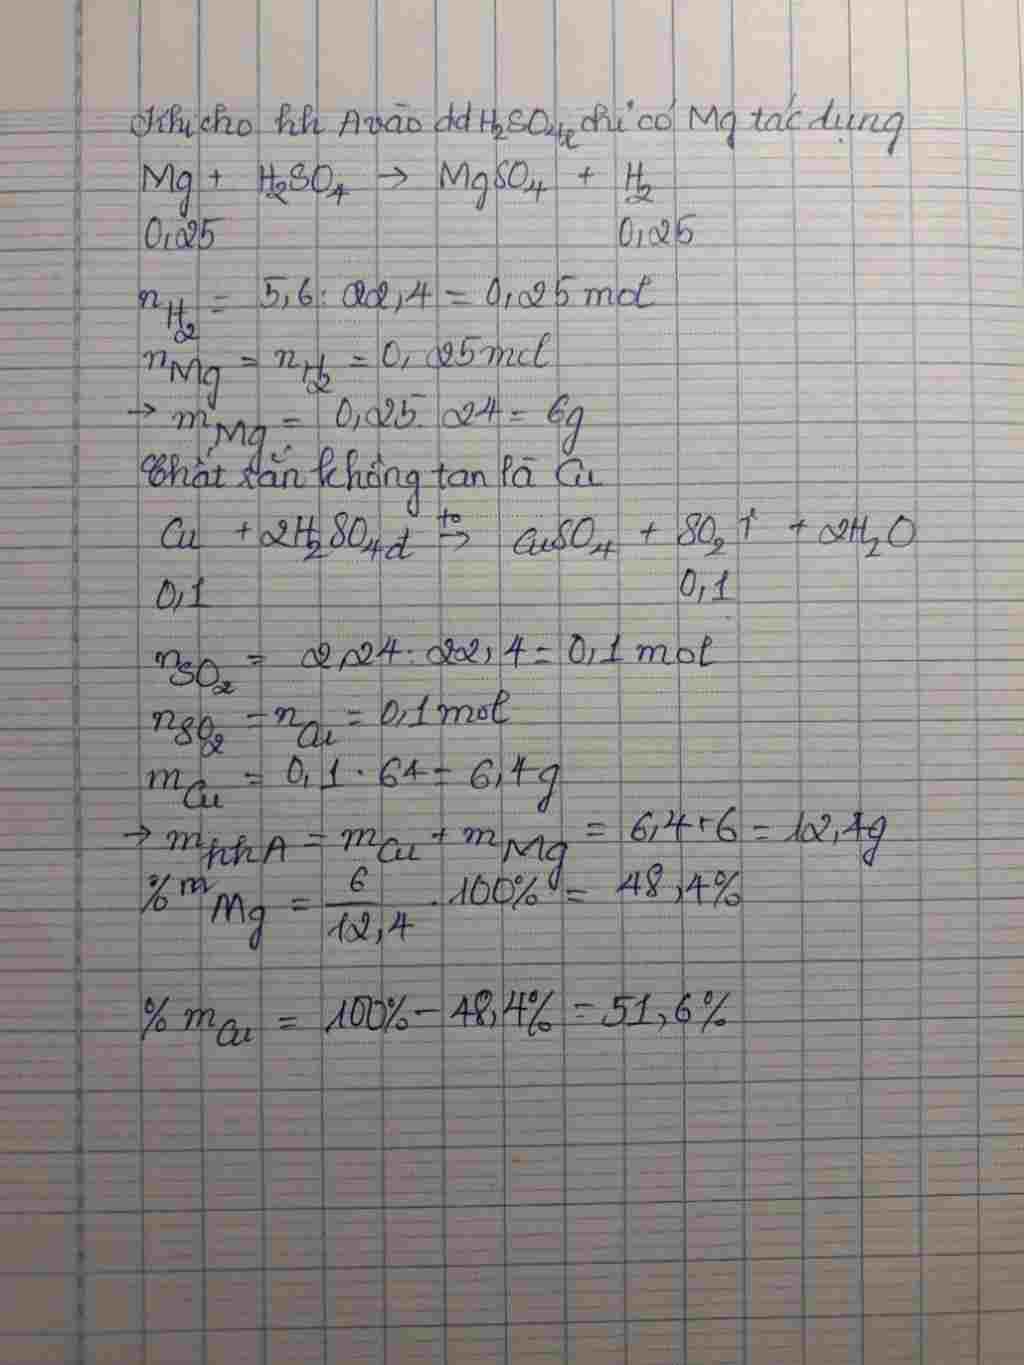 Khi cho hh A vào dd H₂SO₄ l chỉ có Mg tác dụng
Mg + H₂SO₄ → MgSO₄ + H₂
0,25 0,25
n_H₂ = 5,6 : 22,4 = 0,25 mol
n_Mg = n_H₂ = 0,25 mol
→ m_Mg = 0,25 . 24 = 6g
Chất rắn không tan là Cu
Cu + 2H₂SO₄đ t° → CuSO₄ + SO₂ ↑ + 2H₂O
0,1 0,1
n_SO₂ = 2,24 : 22,4 = 0,1 mol
n_SO₂ = n_Cu = 0,1 mol
m_Cu = 0,1 . 64 = 6,4g
→ m_hhA = m_Cu + m_Mg = 6,4 + 6 = 12,4g
% m_Mg = 6/12,4 . 100% = 48,4%
% m_Cu = 100% - 48,4% = 51,6%